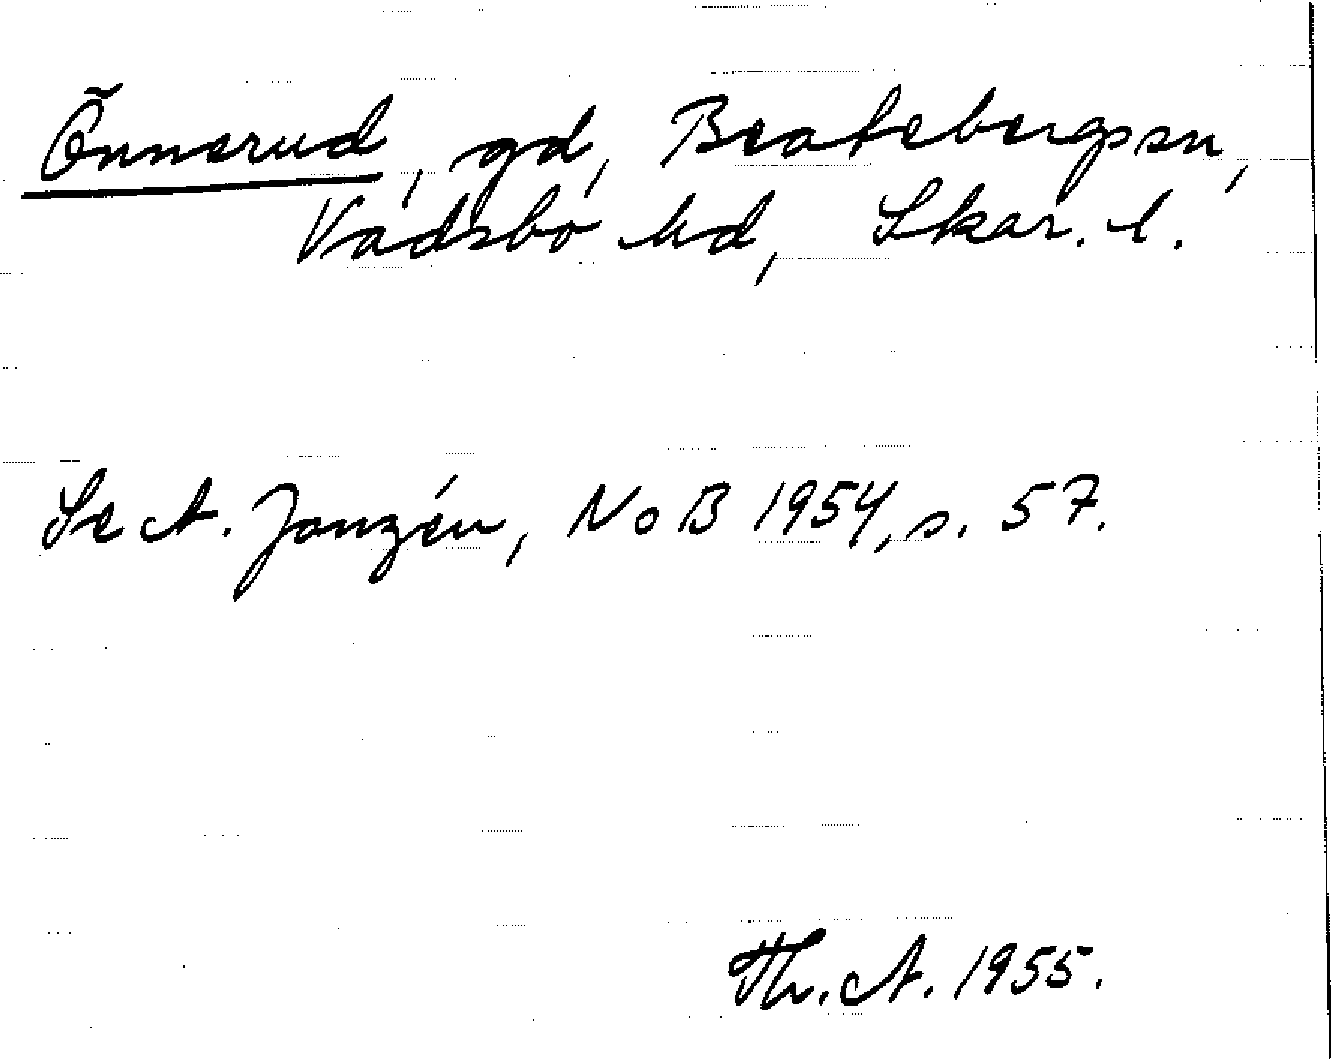 Önnerud, gd, Beatebergssn,
Vadsbo hd, Skar. l.
Se A. Janzén, NoB 1954, s. 57.
Th. A. 1955.